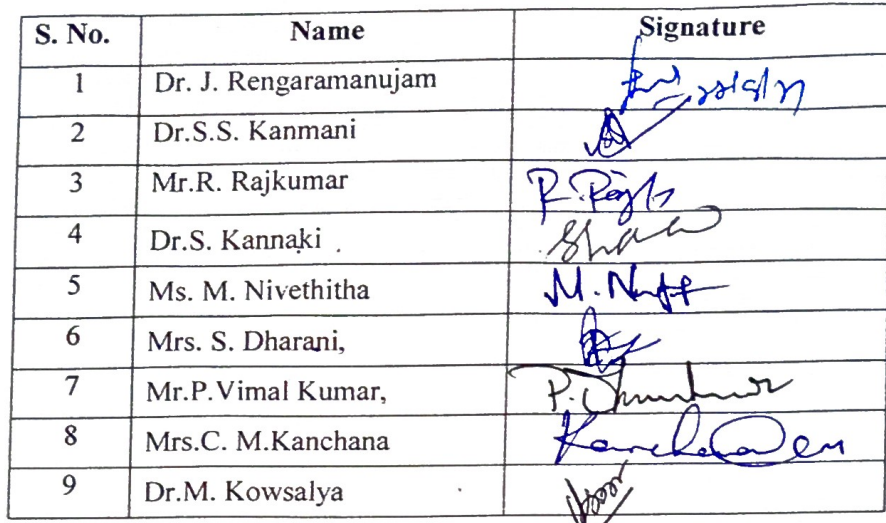 S. No. Name Signature
1 Dr. J. Rengaramanujam
2 Dr.S.S. Kanmani
3 Mr.R. Rajkumar
4 Dr.S. Kannaki
5 Ms. M. Nivethitha M.
6 Mrs. S. Dharani,
7 Mr.P.Vimal Kumar, P.
8 Mrs.C. M.Kanchana
9 Dr.M. Kowsalya